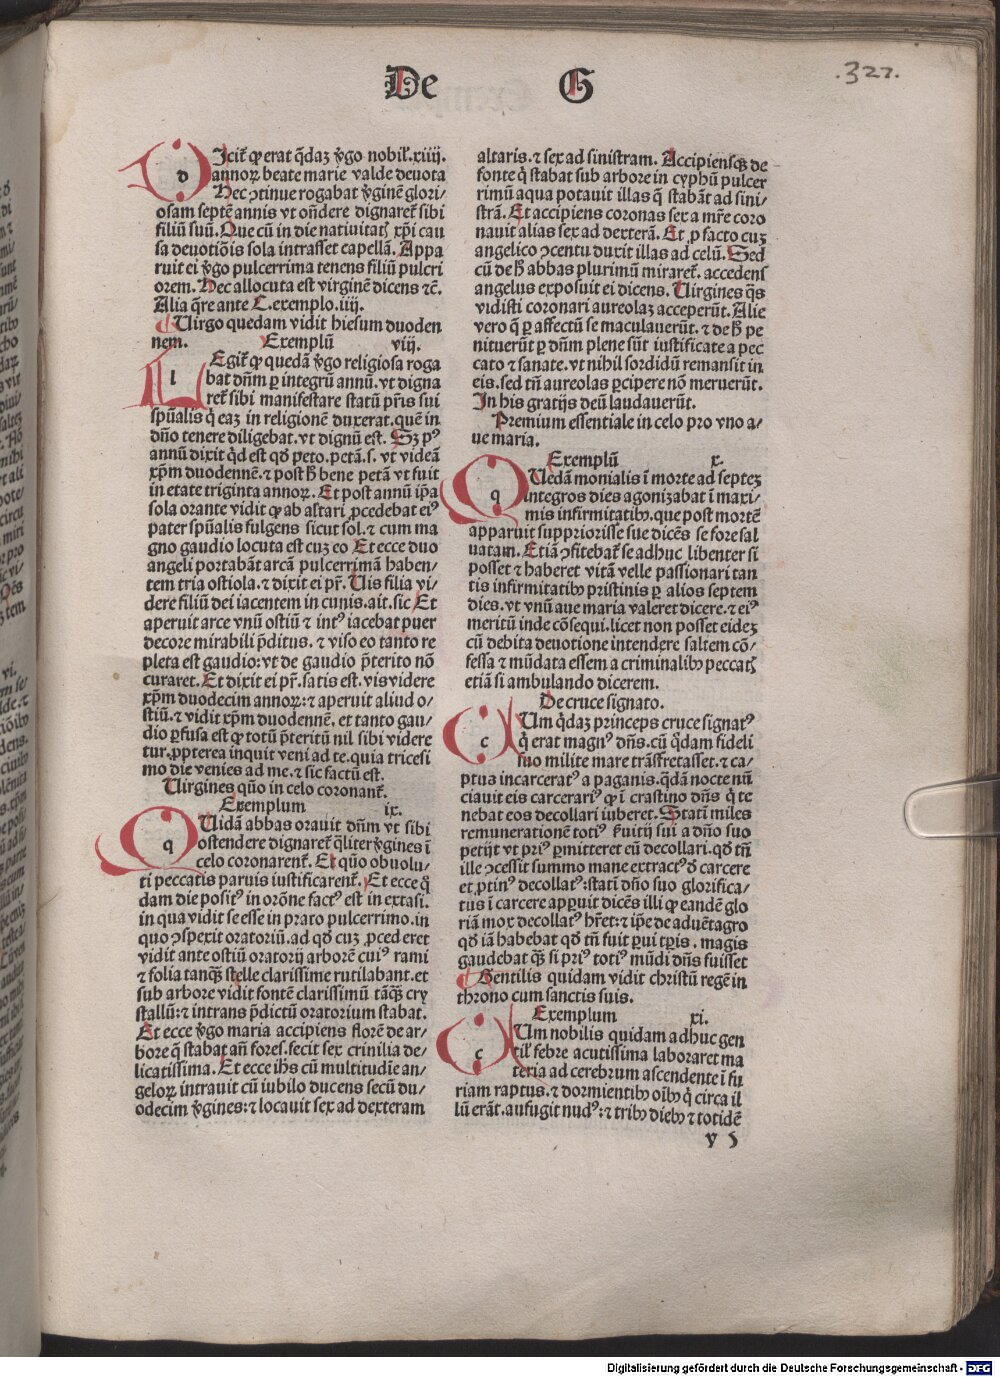 De G
.327.
DIcit̄ qꝫ erat q̄daꝫ v̄go nobil̓.xiiij.
annoꝝ beate marie valde deuota
Hec ꝯtinue rogabat v̄ginē glori-
osam septē annis vt on̄dere dignaret̄ sibi
filiū suū. Que cū in die natiuitat͛ xp̄i cau
sa deuotiōis sola intrasset capellā. Appa
ruit ei v̄go pulcerrima tenens filiū pulcri
orem. Hec allocuta est virginē dicens ⁊c̄.
Alia q̄re ante C.exemplo.iiij.
Uirgo quedam vidit hiesum duoden
nem. Exemplū viij.
LEgit̄ qꝫ quedā v̄go religiosa roga
bat dn̄m ꝑ integrū annū.vt digna
ret̄ sibi manifestare statū pr̄is sui
spūalis q̇ eaꝫ in religionē duxerat.quē in
dn̄o tenere diligebat.vt dignū est. Sꝫ pꝰ
annū dixit qd̓ est qd̓ peto.petā.s.vt videā
xp̄m duodennē.⁊ post h̄ bene petā vt fuit
in etate triginta annoꝝ. Et post annū ip̄a
sola orante vidit qꝫ ab altari ꝓcedebat eiꝰ
pater spūalis fulgens sicut sol.⁊ cum ma
gno gaudio locuta est cuꝫ eo Et ecce duo
angeli portabāt arcā pulcerrimā haben-
tem tria ostiola.⁊ dixit ei pr̄. Uis filia vi-
dere filiū dei iacentem in cunis.ait.sic Et
aperuit arce vnū ostiū ⁊ intꝰ iacebat puer
decore mirabili p̄ditus.⁊ viso eo tanto re
pleta est gaudio:vt de gaudio p̄terito nō
curaret. Et dixit ei pr̄.satis est.vis videre
xp̄m duodecim annoꝝ:⁊ aperuit aliud o-
stiū.⁊ vidit xp̄m duodennē.et tanto gau-
dio ꝑfusa est qꝫ totū p̄teritū nil sibi videre
tur.ꝓpterea inquit veni ad te.quia tricesi
mo die venies ad me.⁊ sic factū est.
Uirgines quō in celo coronant̄.
Exemplum ix.
QUidā abbas orauit dn̄m vt sibi
ostendere dignaret̄ q̄liter v̄gines ī
celo coronarent̄. Et quō obuolu-
ti peccatis paruis iustificarent̄. Et ecce q̄
dam die positꝰ in orōne factꝰ est in extasi.
in qua vidit se esse in prato pulcerrimo.in
quo ꝯspexit oratoriū.ad qd̓ cuꝫ ꝓcederet
vidit ante ostiū oratorij arborē cuiꝰ rami
⁊ folia tanqꝫ stelle clarissime rutilabant.et
sub arbore vidit fontē clarissimū tāqꝫ cry
stallū:⁊ intrans p̄dictū oratorium stabat.
Et ecce v̄go maria accipiens florē de ar-
bore q̄ stabat an̄ fores.fecit sex crinilia de-
licatissima. Et ecce ih̄s cū multitudīe an-
geloꝝ intrauit cū iubilo ducens secū du-
odecim v̄gines:⁊ locauit sex ad dexteram
altaris.⁊ sex ad sinistram. Accipiensqꝫ de
fonte q̇ stabat sub arbore in cyphū pulcer
rimū aqua potauit illas q̄ stabāt ad sini-
strā. Et accipiens coronas sex a mr̄e coro
nauit alias sex ad dexterā. Et ꝓ facto cuꝫ
angelico ꝯcentu duxit illas ad celū. Sed
cū de h̄ abbas plurimū miraret̄.accedens
angelus exposuit ei dicens. Uirgines q̄s
vidisti coronari aureolaꝫ acceperūt. Alie
vero q̄ ꝑ affectū se maculauerūt.⁊ de h̄ pe
nituerūt ꝑ dn̄m plene sūt iustificate a pec
cato ⁊ sanate.vt nihil sordidū remansit in
eis.sed tn̄ aureolas ꝑcipere nō meruerūt.
In his gratijs deū laudauerūt.
Premium essentiale in celo pro vno a-
ue maria.
Exemplū x.
QUedā monialis ī morte ad septeꝫ
integros dies agonizabat ī maxi-
mis infirmitatibꝰ.que post mortē
apparuit suppriorisse sue dicēs se fore sal
uatam. Etiā ꝯfitebat̄ se adhuc libenter si
posset ⁊ haberet vitā velle passionari tan
tis infirmitatibꝰ pristinis ꝑ alios septem
dies.vt vnū aue maria valeret dicere.⁊ eiꝰ
meritū inde cōsequi.licet non posset eideꝫ
cū debita deuotione intendere saltem cō-
fessa ⁊ mūdata essem a criminalibꝰ peccat͛
etiā si ambulando dicerem.
De cruce signato.
CUm q̄daꝫ princeps cruce signatꝰ
q̇ erat magnꝰ dn̄s.cū q̇dam fideli
suo milite mare trāsfretasset.⁊ ca-
ptus incarceratꝰ a paganis.q̄dā nocte nū
ciauit eis carcerariꝰ qꝫ ī crastino dn̄s q̇ te
nebat eos decollari iuberet. Statī miles
remunerationē totiꝰ ẜuitij sui a dn̄o suo
petijt vt priꝰ ꝑmitteret eū decollari.qd̓ tn̄
ille ꝯcessit summo mane extractꝰ d̓ carcere
et ꝓtinꝰ decollatꝰ:statī dn̄o suo glorifica-
tus ī carcere apꝑuit dicēs illi qꝫ eandē glo
riā mox decollatꝰ hr̄et:⁊ ip̄e de aduētagro
qd̓ iā habebat qd̓ tn̄ fuit ꝑui tꝑis.magis
gaudebat qꝫ si priꝰ totiꝰ mūdi dn̄s fuisset
Gentilis quidam vidit christū regē in
throno cum sanctis suis.
Exemplum xi.
CUm nobilis quidam adhuc gen
til̓ febre acutissima laboraret ma
teria ad cerebrum ascendente ī fu
riam raptus.⁊ dormientibꝰ oībꝰ q̇ circa il
lū erāt.aufugit nudꝰ:⁊ tribꝰ diebꝰ ⁊ totidē
v 5
Digitalisierung gefördert durch die Deutsche Forschungsgemeinschaft - DFG